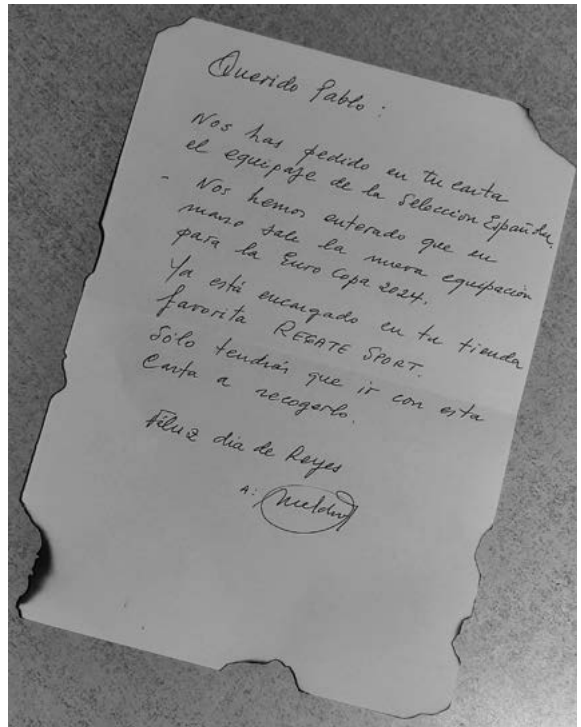 Querido Pablo:
Nos has pedido en tu carta
el equipaje de la Selección Española.
- Nos hemos enterado que en
marzo sale la nueva equipación
para la Euro Copa 2024.
Ya está encargado en tu tienda
favorita REGATE SPORT.
Sólo tendrás que ir con esta
Carta a recogerlo.
Féliz dia de Reyes
A: